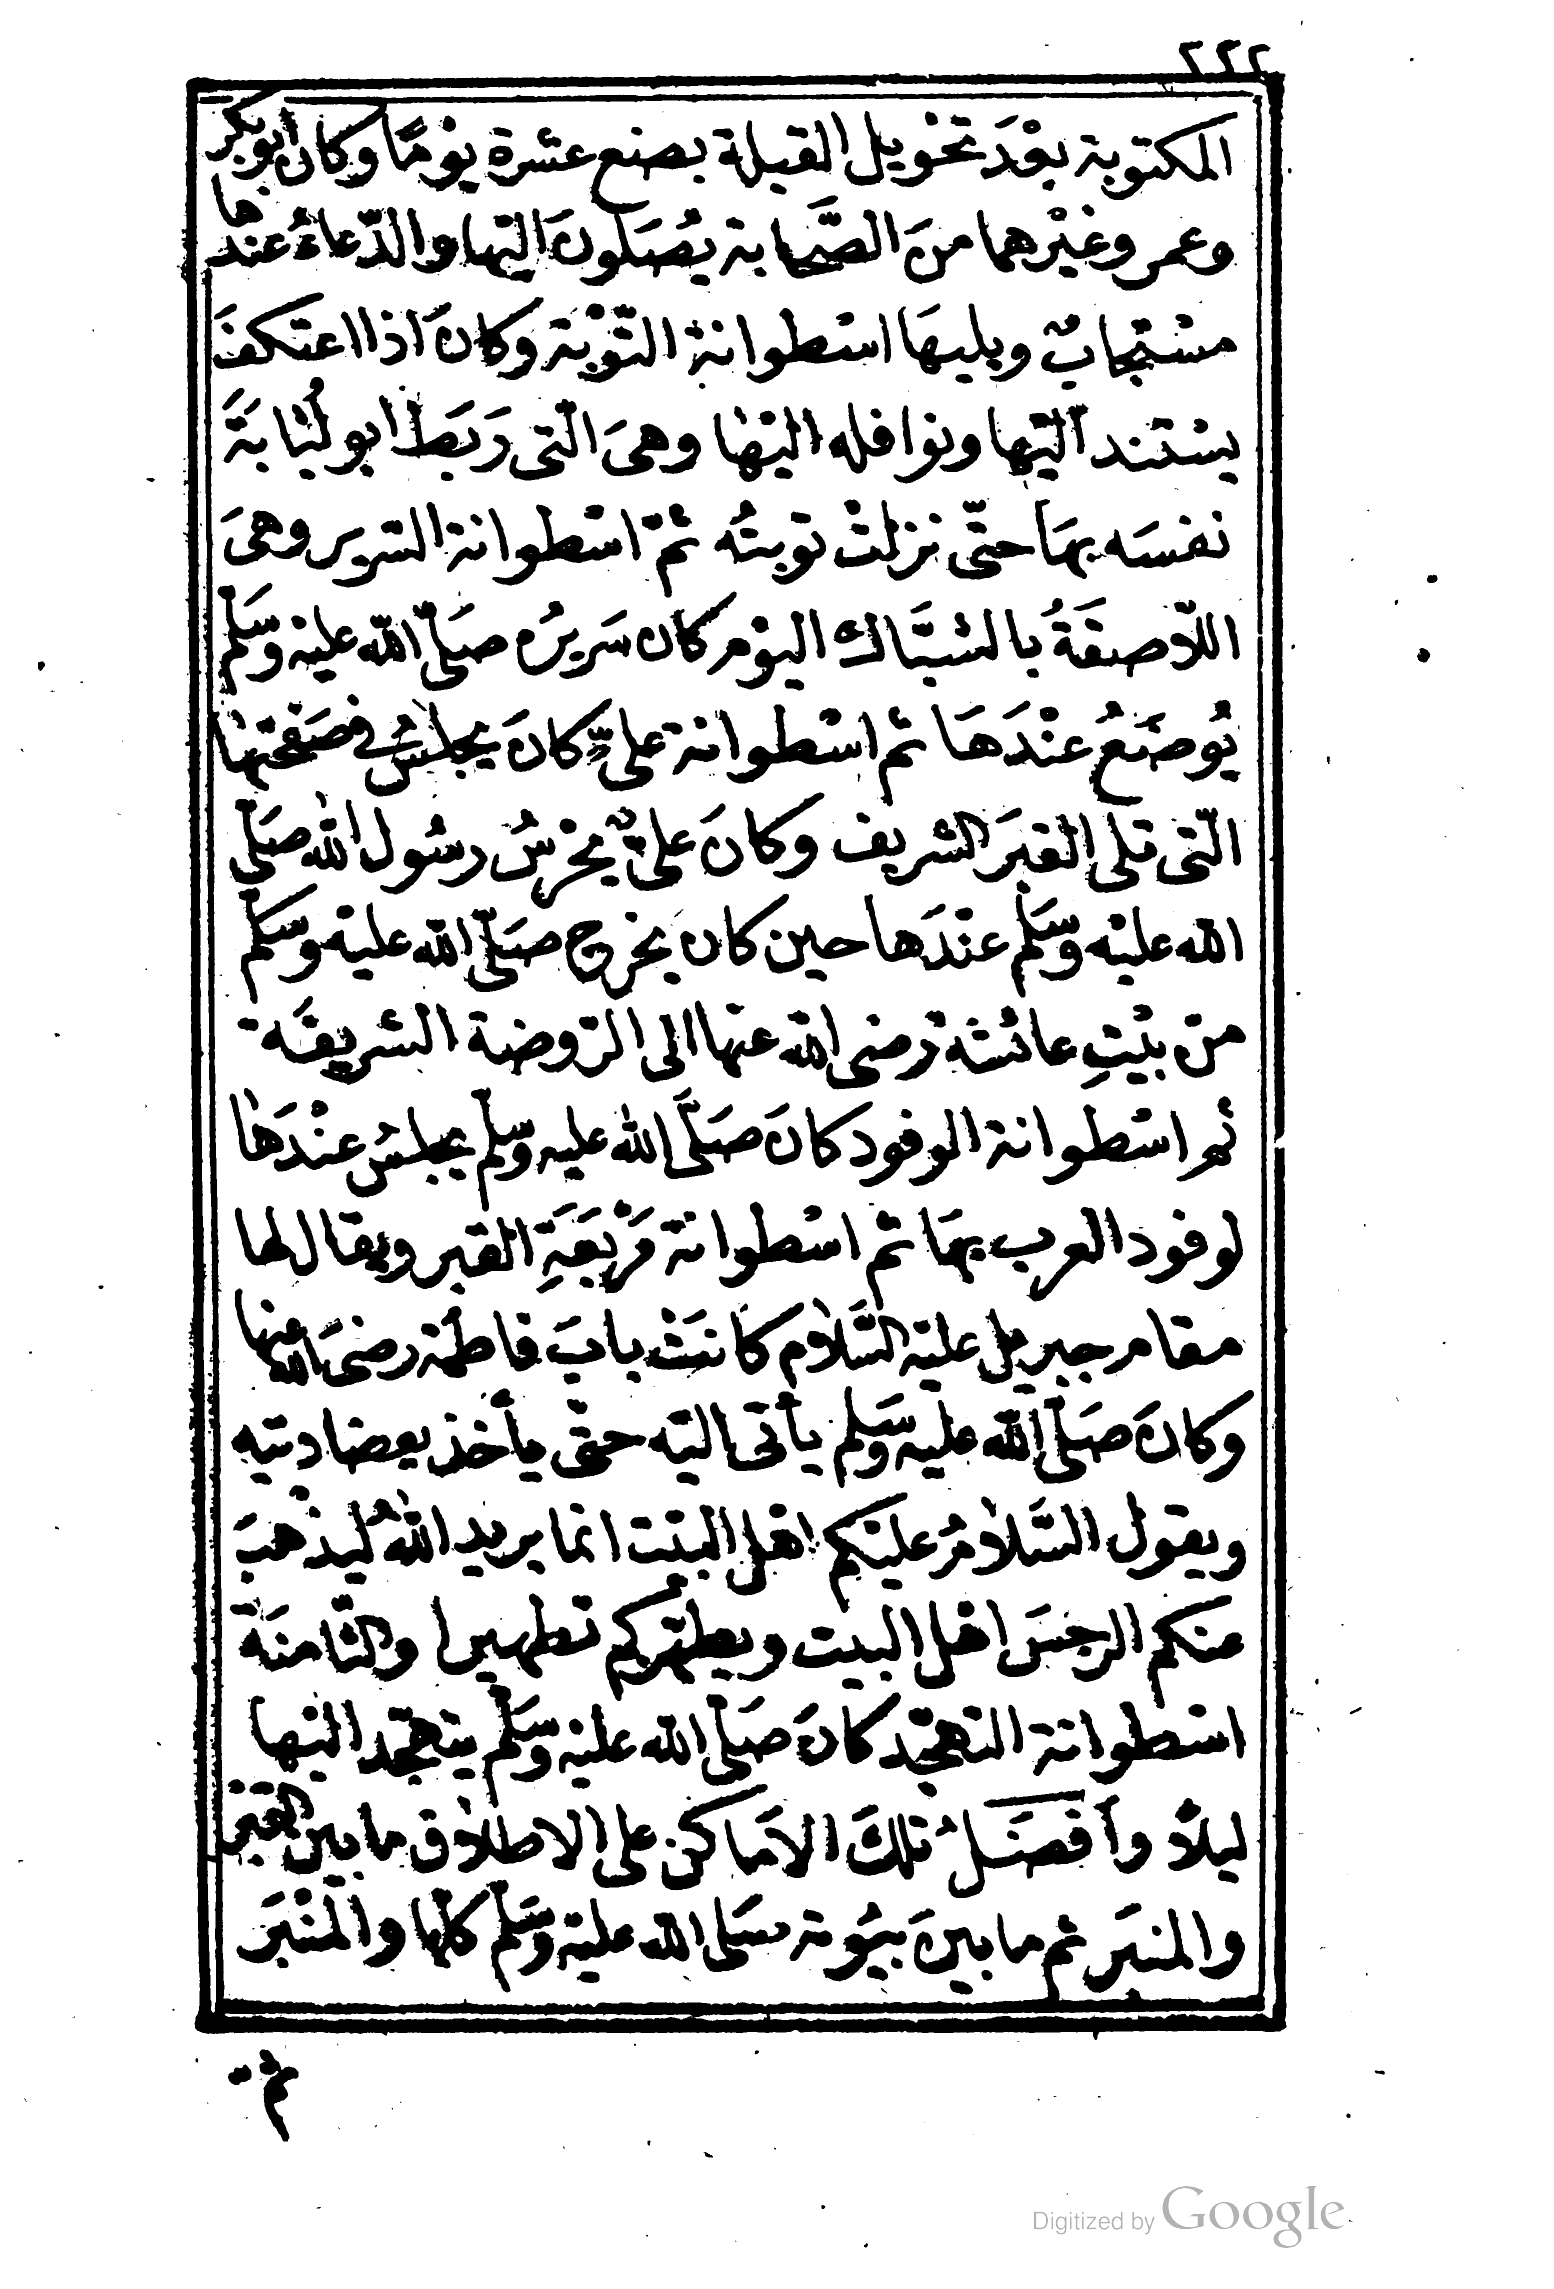 ٢٢٢
المكتوبة بعْدَ تحْويل القبلة بضع عشرة يوْمًا وكان أبو بكر
وعمر وغيْرهما منَ الصَّحابة يُصَلونَ اليْها والدّعاءُ عندها
مسْتجابٌ ويليهَا اسْطوانة التّوْبَة وكانَ اذا اعتكفَ
يسْتند اليْها ونوافله اليْها وهىَ الّتى رَبَط ابو لُبَابَةَ
نفسَه بهَا حتّى نزلتْ توبتُه ثمّ اسْطوانة السّرير وهىَ
اللّاصقَةُ بالشبَّاك اليوْم كان سَريرُه صَلّى الله عليْه وَسَلّم
يُوضَعُ عنْدَهَا ثم اسْطوانة علىٍّ كانَ يجلسُ فى صَفحَتها
الّتى تلى القبَر الشريف وكانَ علىٌّ يحْرسُ رسُول الله صَلى
الله عليْه وَسَلم عنْدَها حين كان يَخرج صَلّى الله عليْه وسَلم
منْ بيْتِ عائشة رَضى الله عنها الى الرّوضة الشريفَة
ثم اسْطوانة الوفود كانَ صَلَّى الله عليه وَسلّم يجلسُ عنْدَهَا
لوفود العرب بهَا ثم اسْطوانة مَرْبَعَةِ القبر ويقال لها
مقام جبريل عليْه السَّلام كانتْ بابَ فاطمة رضىَ الله عنها
وكانَ صَلّى الله عليه وسَلم يأتى اليْه حتّى يأخذ بعضادتيْه
ويقول السَّلامُ عليْكم اهْل البيْت انما يريد اللهُ ليذْهبَ
عنكم الرجسَ اهْل البيت ويطهّركم تطهيرا والثّامنَة
اسْطوانة التهجّد كانَ صَلى الله عليْه وَسَلم يتهجّد اليْها
ليلاً وأفضَلُ تلكَ الأمَاكن على الاطلاق ما بين القبْر
والمنبَر ثم ما بينَ بيُوته صَلى الله عليْه وَسَلّم كلّها والمنْبَر
ثم
Digitized by Google